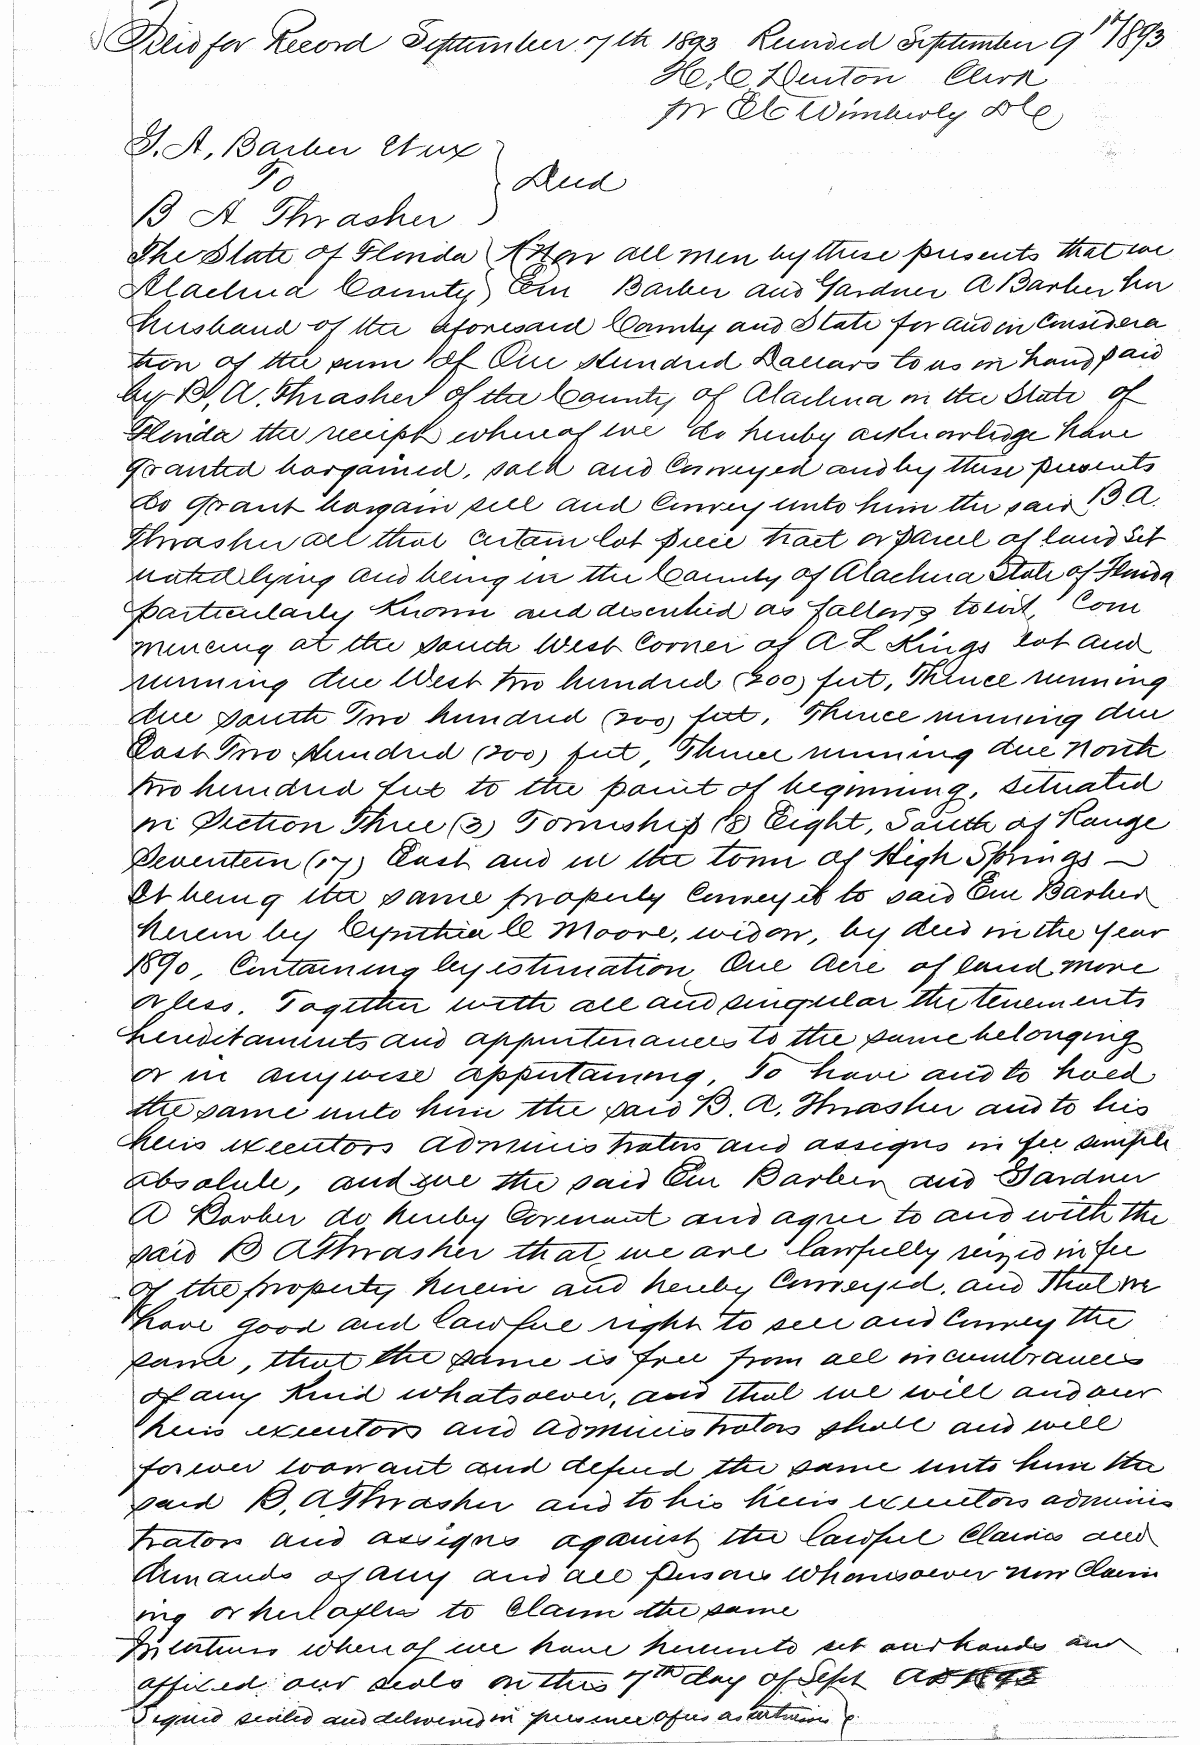 Filed for Record September 7th 1893 Recorded September 9th 1893
H. C. Denton Clerk
pr E C Wimberly D C
G. A. Barber et ux
To
Deed
B A Thrasher
The State of Florida Know all men by these presents that we
Alachua County Em Barber and Gardner A Barber her
husband of the aforesaid County and State for and in Considera
tion of the sum of One Hundred Dollars to us in hand paid
by B. A. Thrasher of the County of Alachua in the State of
Florida the receipt whereof we do hereby acknowledge have
granted bargained, sold and Conveyed and by these presents
do grant bargain sell and Convey unto him the said B A.
Thrasher all that certain lot piece tract or parcel of land sit
uated lying and being in the County of Alachua State of Florida
particularly Known and described as follows towit, Com
mencing at the South West Corner of A L Kings lot and
running due West two hundred (200) feet, Thence running
due south Two hundred (200) feet, Thence running due
East Two Hundred (200) feet, Thence running due North
two hundred feet to the point of beginning, situated
in Section Three (3) Township (8) Eight, South of Range
Seventeen (17) East and in the town of High Springs —
It being the same property Conveyed to said Em Barber
herein by Cynthia C Moore, widow, by deed in the year
1890, Containing by estimation One Acre of land more
or less. Together with all and singular the tenements
hereditaments and appurtenances to the same belonging
or in anywise appertaining, To have and to hold
the same unto him the said B. A. Thrasher and to his
heirs executors administrators and assigns in fee simple
absolute, and we the said Em Barber and Gardner
A Barber do hereby Covenant and agree to and with the
said B A Thrasher that we are lawfully seized in fee
of the property herein and hereby Conveyed, and that we
have good and lawful right to sell and Convey the
same, that the same is free from all incumbrances
of any Kind whatsoever, and that we will and our
heirs executors and administrators shall and will
forever warrant and defend the same unto him the
said B. A Thrasher and to his heirs executors adminis
trators and assigns against the lawful Claims and
demands of any and all persons whomsoever now Claim
ing or hereafter to Claim the same
In witness whereof we have hereunto set our hands and
affixed our seals on this 7th day of Sept AD 1893
Signed sealed and delivered in presence of us as witnesses